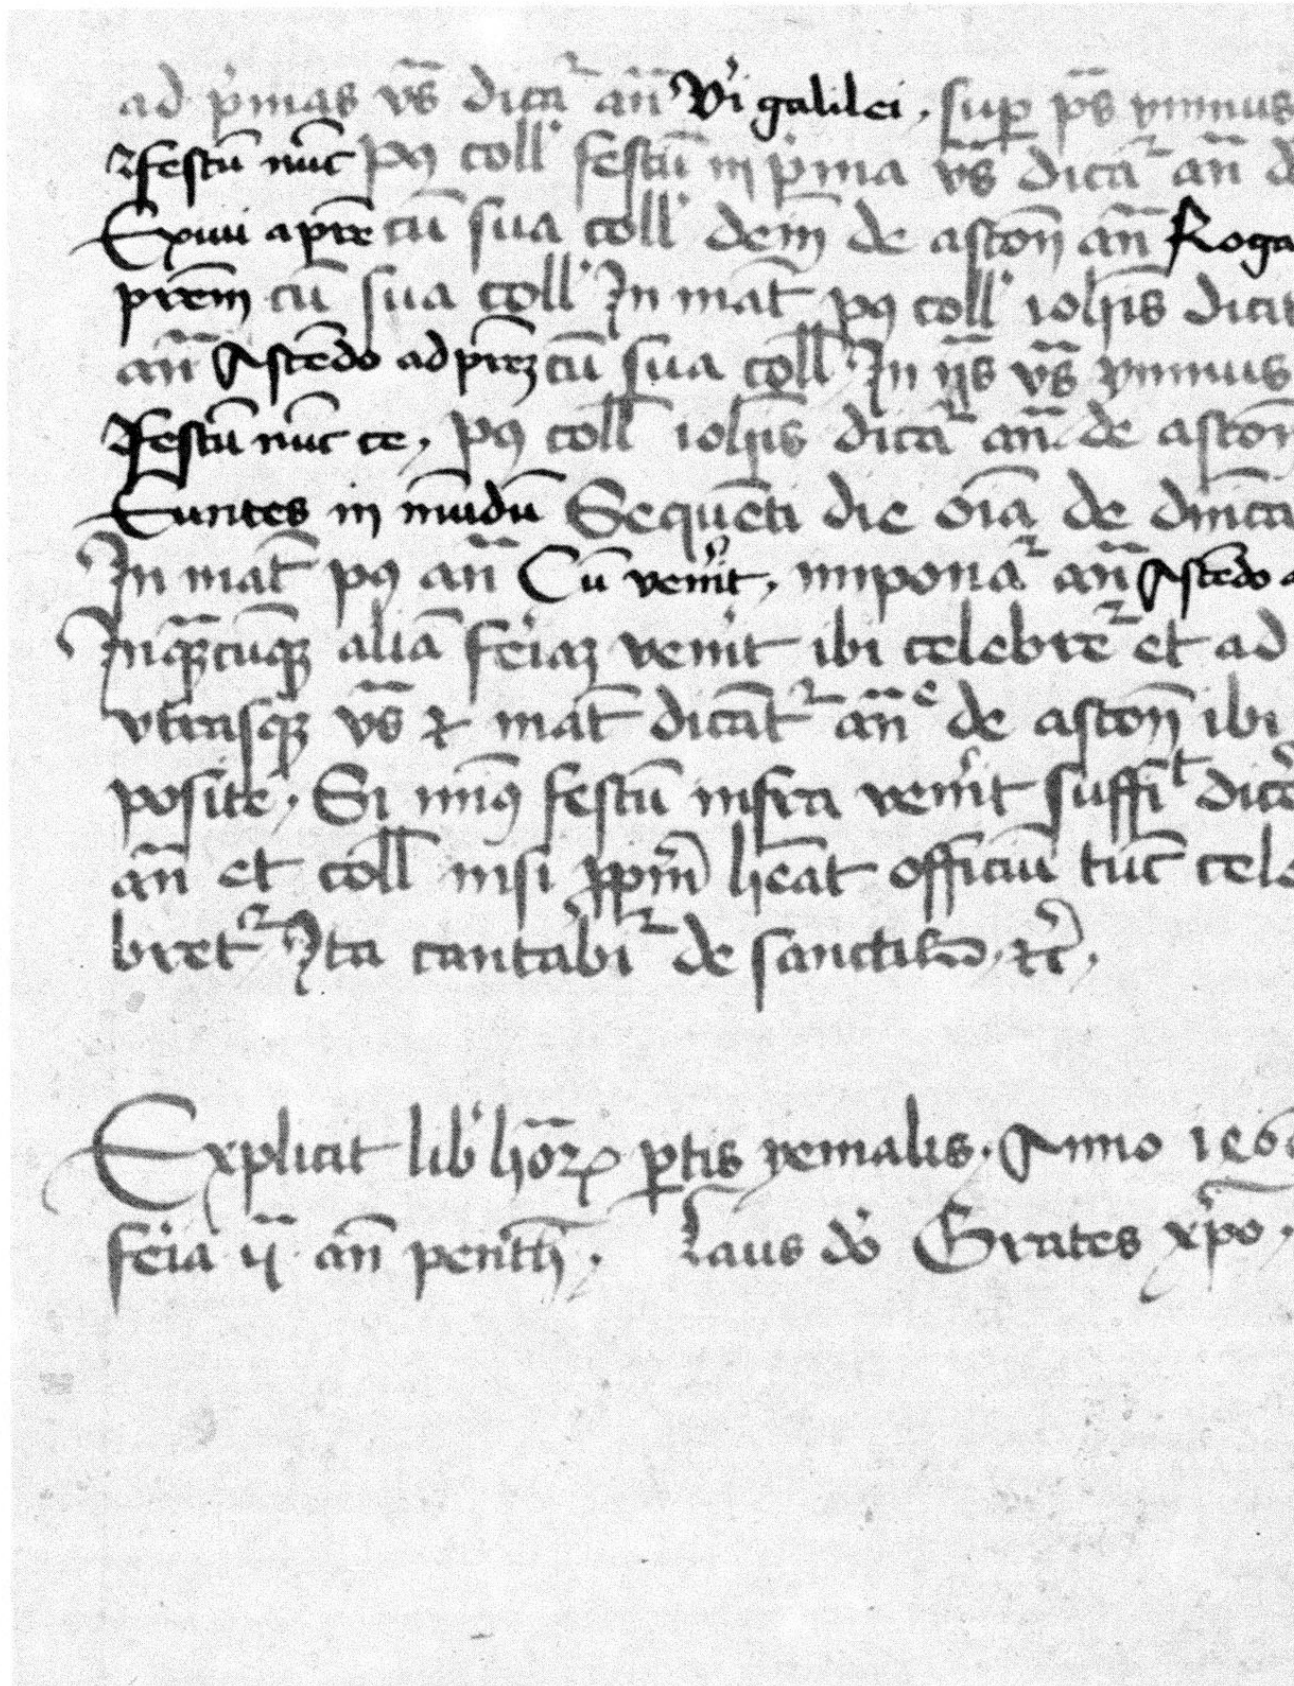 ad p'mas vs̄ dicat᷑ an̄ Vi'i galilei. sup ps̄ ymnus
festū nūc pꝯ coll' festū in p'ma vs̄ dicat᷑ an̄ d
Exiui a pr̄e cū sua coll' dein̄ de ascen̄ an̄ Roga
pr̄em cū sua coll' In mat̄ pꝯ coll' ioh̄is dicit
an̄ Ascēdo ad pr̄eꝫ cū sua coll' In ijs̄ vs̄ ymnus
Festū nūc ce, pꝯ coll' ioh̄is dicat᷑ an̄ de ascen̄
Euntes in mūdū Sequēti die oīa de dnīca
In mat̄ pꝯ an̄ Cū ven'it, imponat᷑ an̄ Ascēdo a
In quācūqꝫ aliā feriaꝫ ven'it ibi celebret᷑ et ad
vtrasqꝫ vs̄ ⁊ mat̄ dicānt᷑ an̄e de ascen̄ ibi
posite. Si minꝯ festū infra ven'it suffīt dice'
an̄ et coll' nisi ꝓpriū hēat officiū tūc cele
bret᷑ Ita cantabit᷑ de sanctis ⁊c̄.
Explicit lib' horaꝝ ꝑtis yemalis. Anno 146
feria ij an̄ penth̄. Laus dō Grates xp̄o.